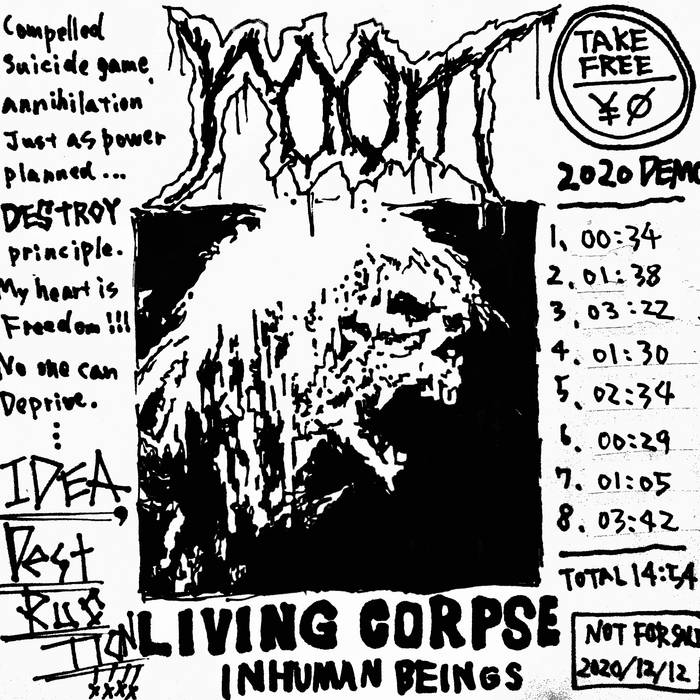 Compelled
Suicide game.
annihilation
Just as power
planned...
DESTROY
principle.
My heart is
Freedom!!!
No one can
Deprive.
IDEA,
Dest
Ruc
TION
!!!!
xxxx
TAKE
FREE
¥0
2020 DEMO
1. 00:34
2. 01:38
3. 03:22
4. 01:30
5. 02:34
6. 00:29
7. 01:05
8. 03:42
TOTAL 14:54
NOT FOR SALE
2020/12/12
LIVING CORPSE
INHUMAN BEINGS